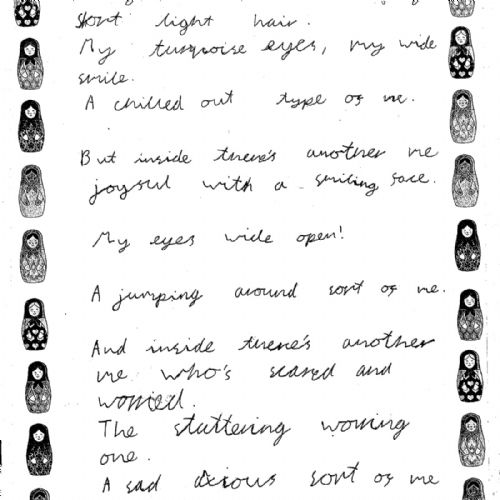 short light hair.
My turquoise eyes, my wide
smile.
A chilled out type of me.
But inside there's another me
joyful with a smiling face.
My eyes wide open!
A jumping around sort of me.
And inside there's another
me who's scared and
worried.
The stuttering worring
one.
A sad sort of me